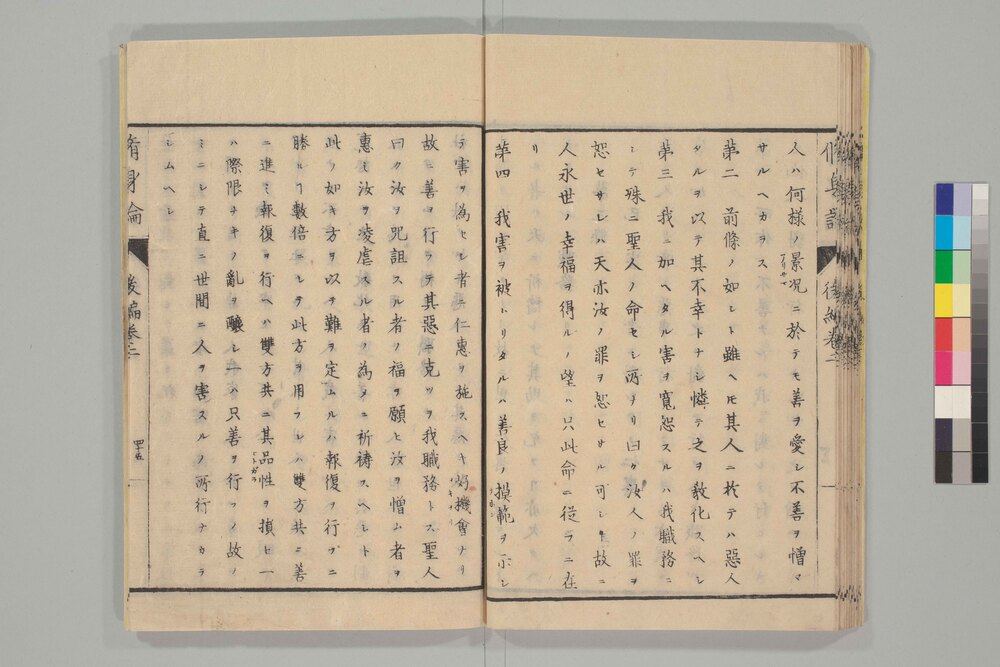 人ハ何様ノ景況ニ於テモ善ヲ愛シ不善ヲ憎マ
サルヘカラス
第二 前條ノ如シト雖ヘ𪜈其人ニ於テハ惡人
タルヲ以テ其不幸トナシ憐テ之ヲ敎化スヘシ
第三 我ニ加ヘタル害ヲ寬恕スルハ我職務ニ
シテ殊ニ聖人ノ命セシ所ナリ曰ク汝人ノ罪ヲ
恕セサレハ天亦汝ノ罪ヲ恕セサル可シ故ニ
人永世ノ幸福ヲ得ルノ望ハ只此命ニ從フニ在
リ
第四 我害ヲ被トリタルハ善良ノ摸範ヲ示シ
テ害ヲ為セシ者ニ仁惠ヲ施スヘキ好機會ナリ
故ニ善ヲ行フテ其惡ニ克ツヲ我職務トス聖人
曰ク汝ヲ咒詛スル者ノ福ヲ願ヒ汝ヲ憎ム者ヲ
惠ミ汝ヲ凌虐スル者ノ為メニ祈禱スヘシト
此ノ如キ方ヲ以テ難ヲ定ムルハ報復ヲ行フニ
勝ルヿ數倍ニシテ此方ヲ用フレハ雙方共ニ善
ニ進ミ報復ヲ行ヘハ雙方共ニ其品性ヲ損ヒ一
ハ際限ナキノ亂ヲ釀シ一ハ只善ヲ行フノ故ノ
ミニシテ直ニ世間ニ人ヲ害スルノ所行ナカラ
シムヘシ
脩身論 後編卷二 四十五